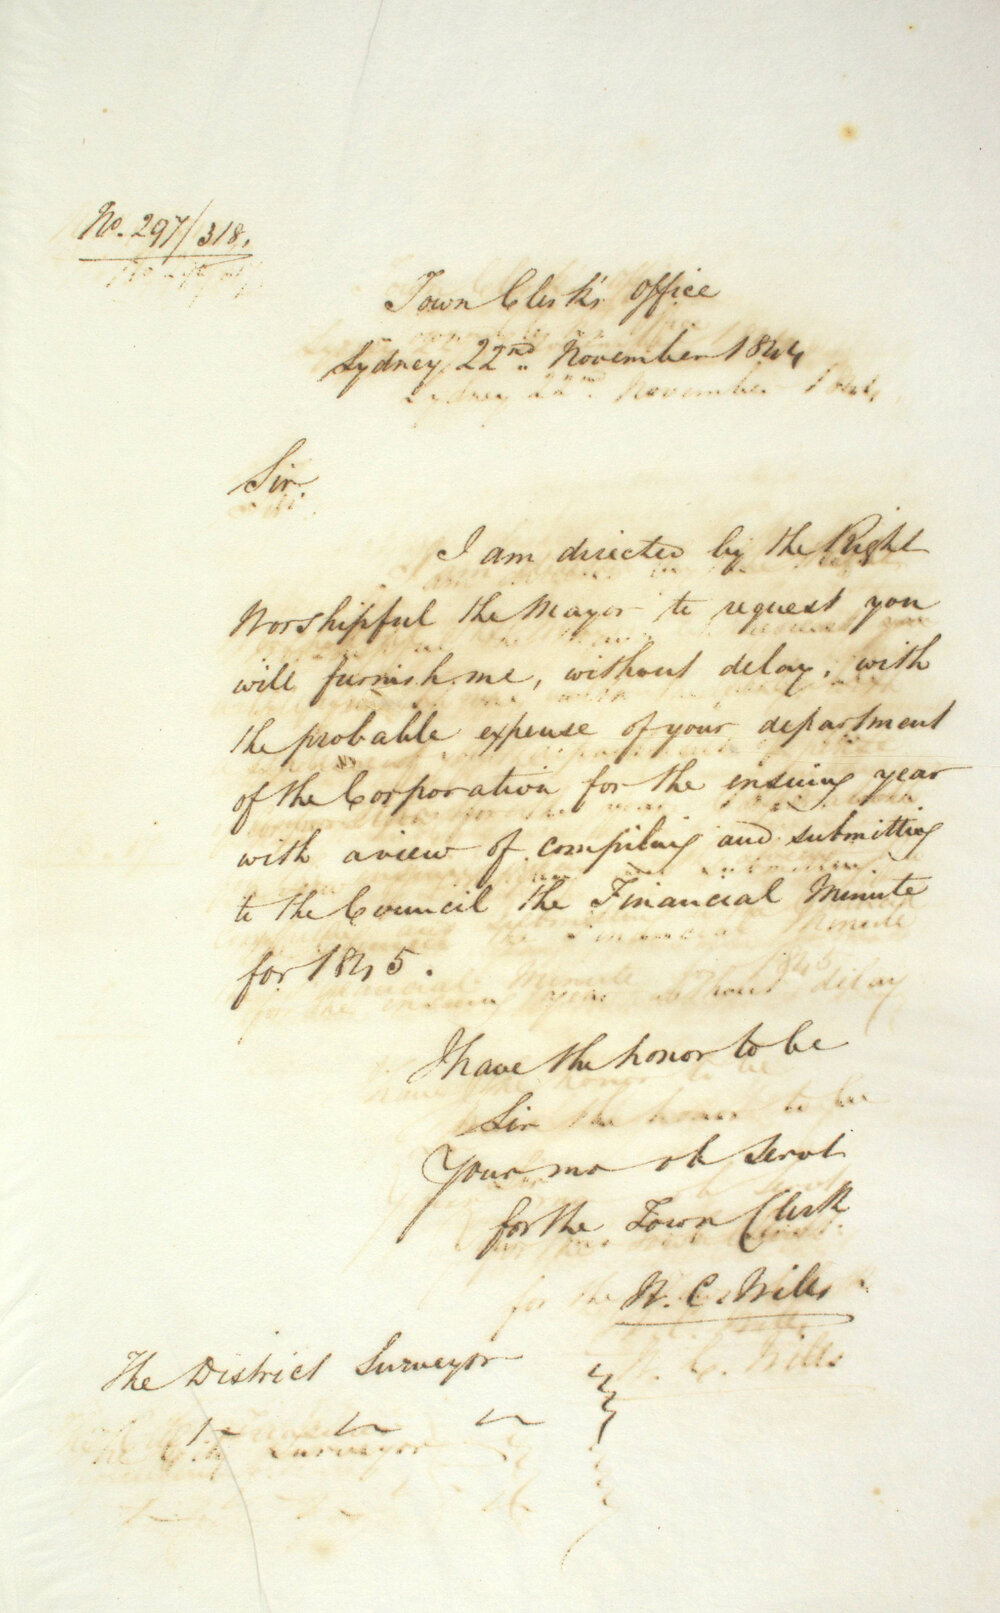 No. 297/318.
Town Clerk's Office
Sydney 22nd November 1844
Sir
I am directed by the Right
Worshipful the Mayor to request you
will furnish me, without delay, with
the probable expense of your department
of the Corporation for the ensuing year
with a view of compiling and submitting
to the Council the Financial Minute
for 1845.
I have the honor to be
Sir
Your mo ob Servt
for the Town Clerk
W. C. Wills
The District Surveyor